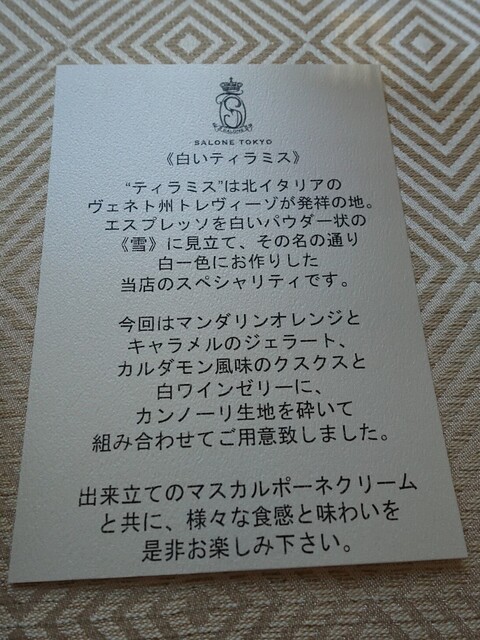 SALONE TOKYO
《白いティラミス》
“ティラミス”は北イタリアの
ヴェネト州トレヴィーゾが発祥の地。
エスプレッソを白いパウダー状の
《雪》に見立て、その名の通り
白一色にお作りした
当店のスペシャリティです。
今回はマンダリンオレンジと
キャラメルのジェラート、
カルダモン風味のクスクスと
白ワインゼリーに、
カンノーリ生地を砕いて
組み合わせてご用意致しました。
出来立てのマスカルポーネクリーム
と共に、様々な食感と味わいを
是非お楽しみ下さい。